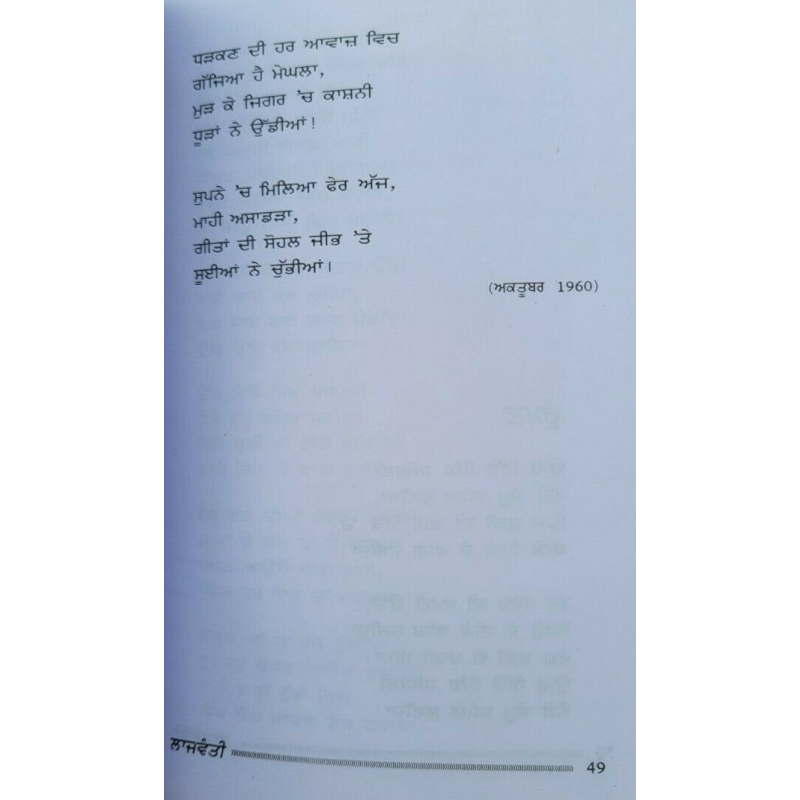 ਧੜਕਣ ਦੀ ਹਰ ਆਵਾਜ਼ ਵਿਚ
ਗੱਜਿਆ ਹੈ ਮੇਘਲਾ,
ਮੁੜ ਕੇ ਜਿਗਰ 'ਚ ਕਾਸ਼ਨੀ
ਧੂੜਾਂ ਨੇ ਉੱਡੀਆਂ!
ਸੁਪਨੇ 'ਚ ਮਿਲਿਆ ਫੇਰ ਅੱਜ,
ਮਾਹੀ ਅਸਾਡੜਾ,
ਗੀਤਾਂ ਦੀ ਸੋਹਲ ਜੀਭ 'ਤੇ
ਸੂਈਆਂ ਨੇ ਚੁੱਭੀਆਂ।
(ਅਕਤੂਬਰ 1960)
ਲਾਜਵੰਤੀ
49